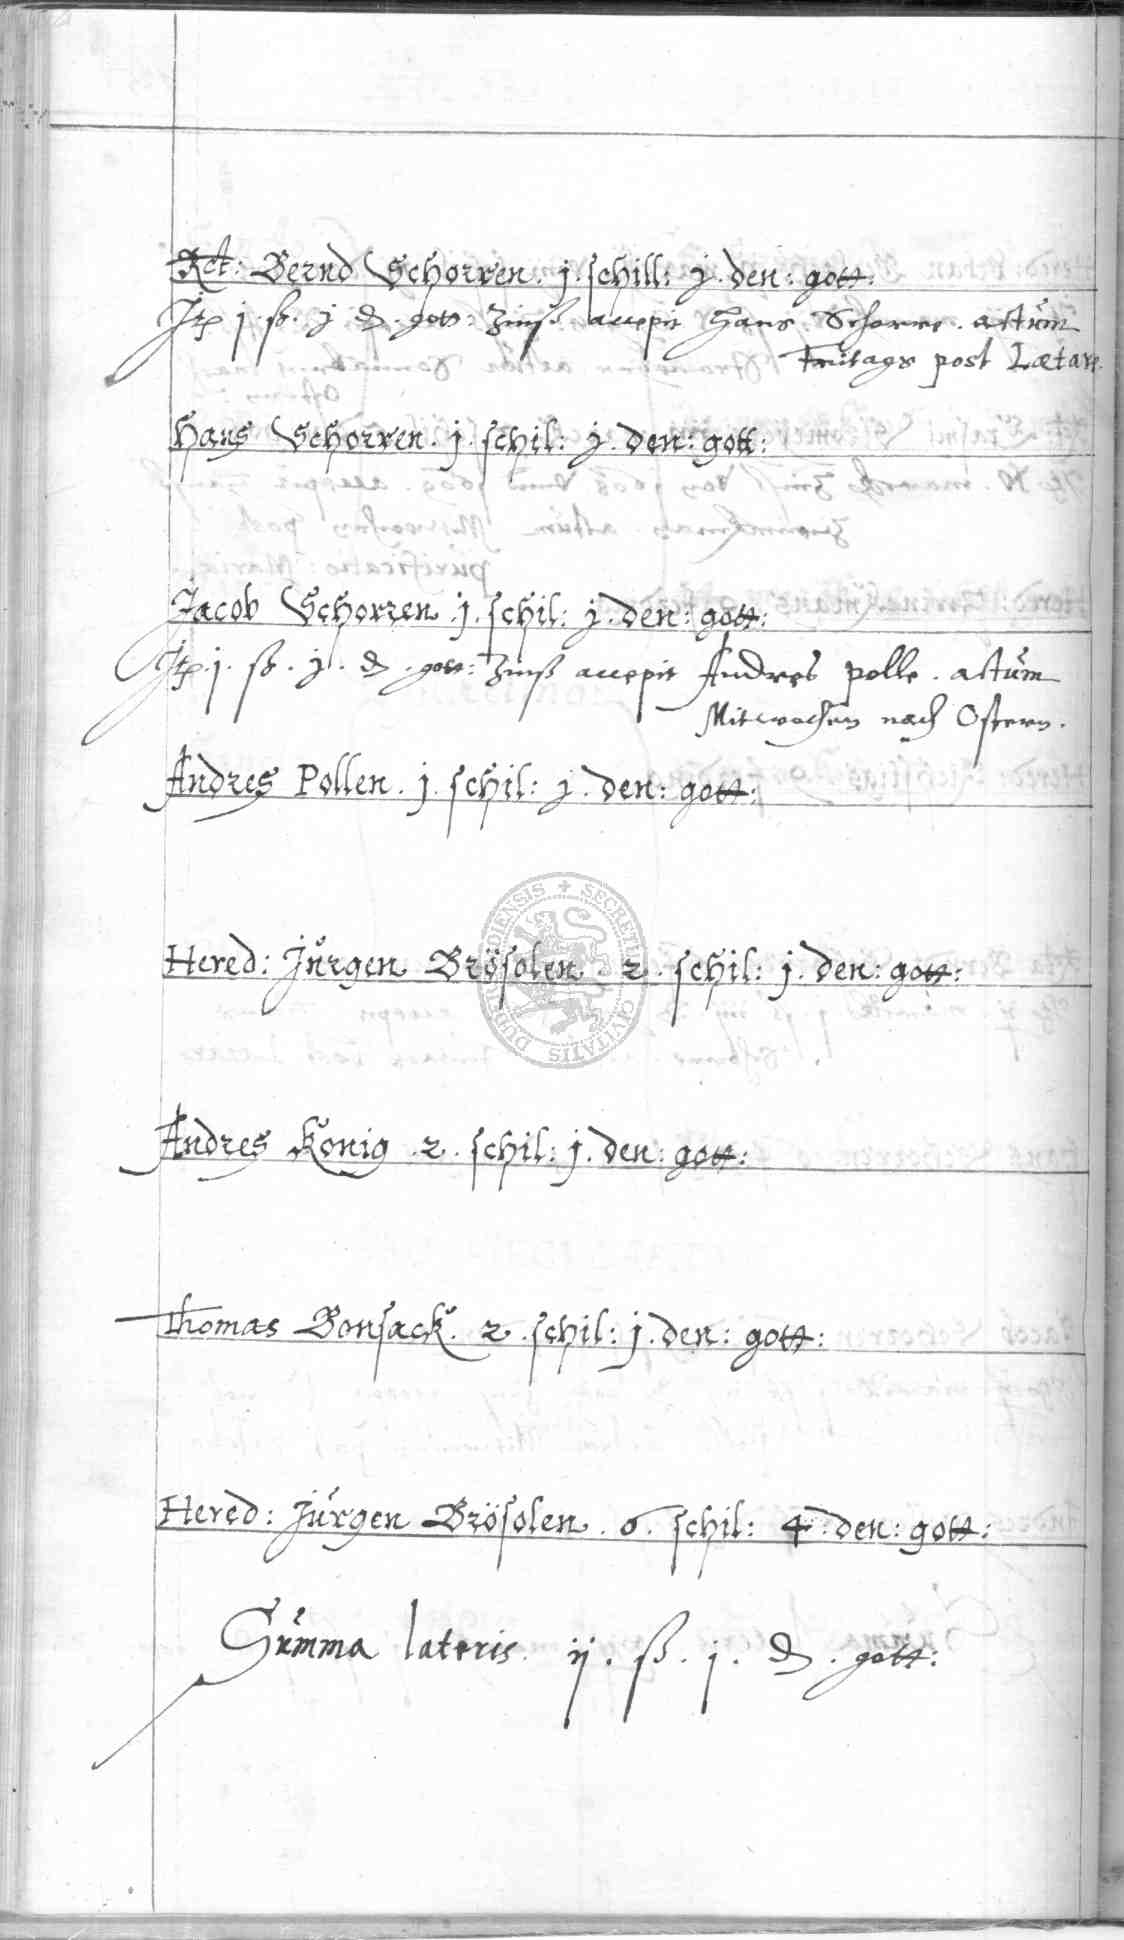 Rct: Bernd Schorren . j . schill: j . den: gott:
Itz j . ß . j d . gott: Zinß accepit Hans Schorre . actum
Fritags post Lætare
Hans Schorren . j . schil: j . den: gott:
Jacob Schorren . j . schil: j . den: gott:
Itz . j . ß . j . d . gott: Zinß accepit Andres polle . actum
Mitwochen nach Ostern .
Andres Pollen . j . schil: j . den: gott:
Hered: Jürgen Brösolen . 2 . schil: j . den: gott:
Andres König . 2 . schil: j . den: gott:
Thomas Bonsack . 2 . schil: j . den: gott:
Hered: Jürgen Brösolen . 6 . schil: 4 . den: gott:
Summa lateris . ij . ß . j . d . gott:
SECRETUM CIVITATIS DUDERSTADIENSIS